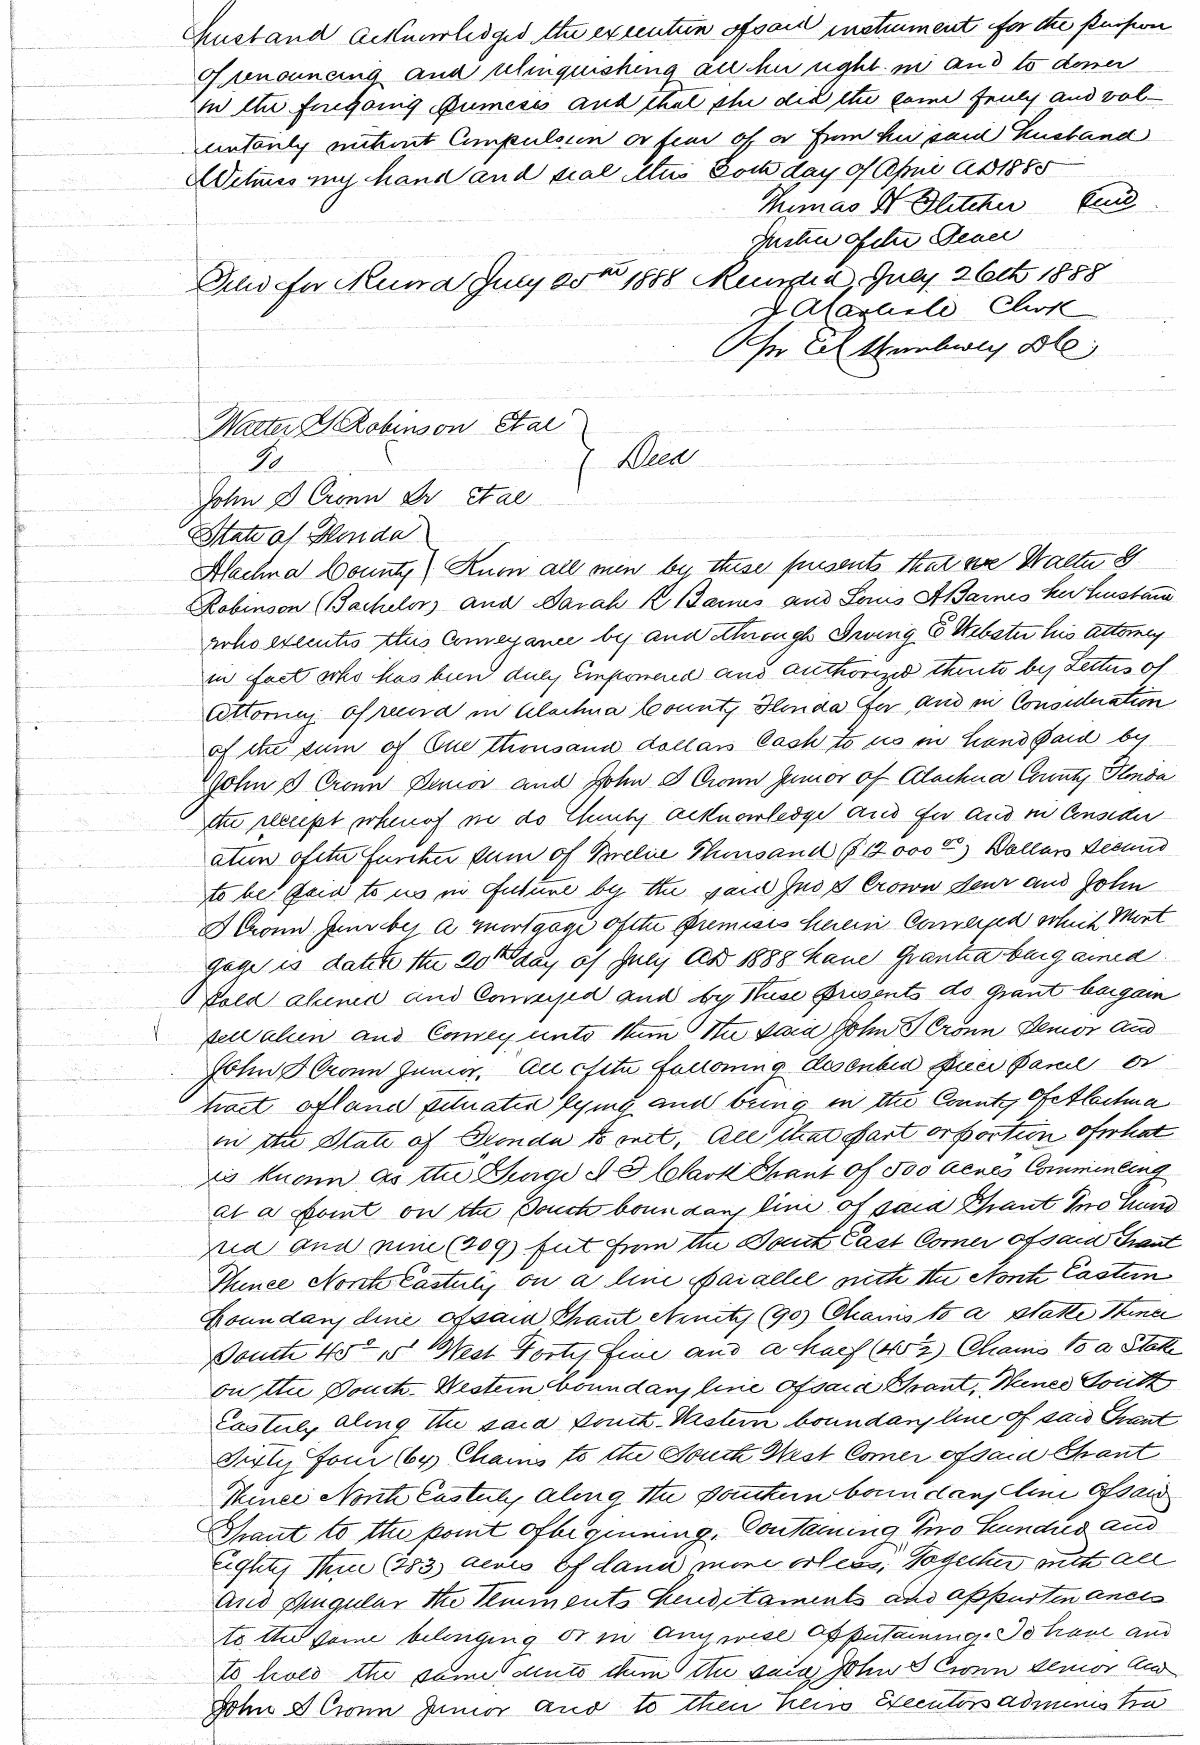 husband acknowledged the execution of said instrument for the purpose
of renouncing and relinquishing all her right in and to dower
in the foregoing premises and that she did the same freely and vol-
untarily without Compulsion or fear of or from her said husband
Witness my hand and seal this 30th day of April AD 1885
Thomas H Fletcher Seal
Justice of the Peace
Filed for Record July 20th 1888 Recorded July 26th 1888
J A Carlisle Clerk
Per DC
Walter G Robinson Et al
To } Deed
John S Crown Sr et al
State of Florida
Alachua County } Know all men by these presents that we Walter G
Robinson (Bachelor) and Sarah R Barnes and Louis A Barnes her husband
who executes this Conveyance by and through Irving E Webster his attorney
in fact who has been duly Empowered and authorized thereto by Letters of
Attorney of record in Alachua County Florida for and in Consideration
of the sum of One thousand dollars Cash to us in hand paid by
John S Crown Senior and John S Crown Junior of Alachua County Florida
the receipt whereof we do hereby acknowledge and for and in Consider
ation of the further sum of Twelve Thousand ($12000 00) Dollars secured
to be paid to us in future by the said Jno S Crown Senr and John
S Crown Junr by a mortgage of the premises herein Conveyed which Mort
gage is dated the 20th day of July AD 1888 have granted bargained
sold aliened and Conveyed and by these presents do grant bargain
sell alien and Convey unto them the said John S Crown Senior and
John S Crown Junior. "All of the following described piece parcel or
tract of land situated lying and being in the County of Alachua
in the State of Florida to wit. All that part or portion of what
is known as the "George I F Clark Grant of 500 acres" Commencing
at a point on the South boundary line of said Grant Two hund
red and nine (209) feet from the South East Corner of said Grant
Thence North Easterly on a line parallel with the North Eastern
boundary line of said Grant Ninety (90) Chains to a stake Thence
South 45° 15' West Forty five and a half (45½) Chains to a Stake
on the South-Western boundary line of said Grant, Thence South
Easterly along the said South-Western boundary line of said Grant
Sixty four (64) Chains to the South West Corner of said Grant
Thence North Easterly along the southern boundary line of said
Grant to the point of beginning. Containing Two hundred and
Eighty Three (283) acres of land more or less," Together with all
and singular the Tenements hereditaments and appurtenances
to the same belonging or in anywise appertaining. To have and
to hold the same unto them the said John S Crown senior and
John S Crown Junior and to their heirs Executors administra